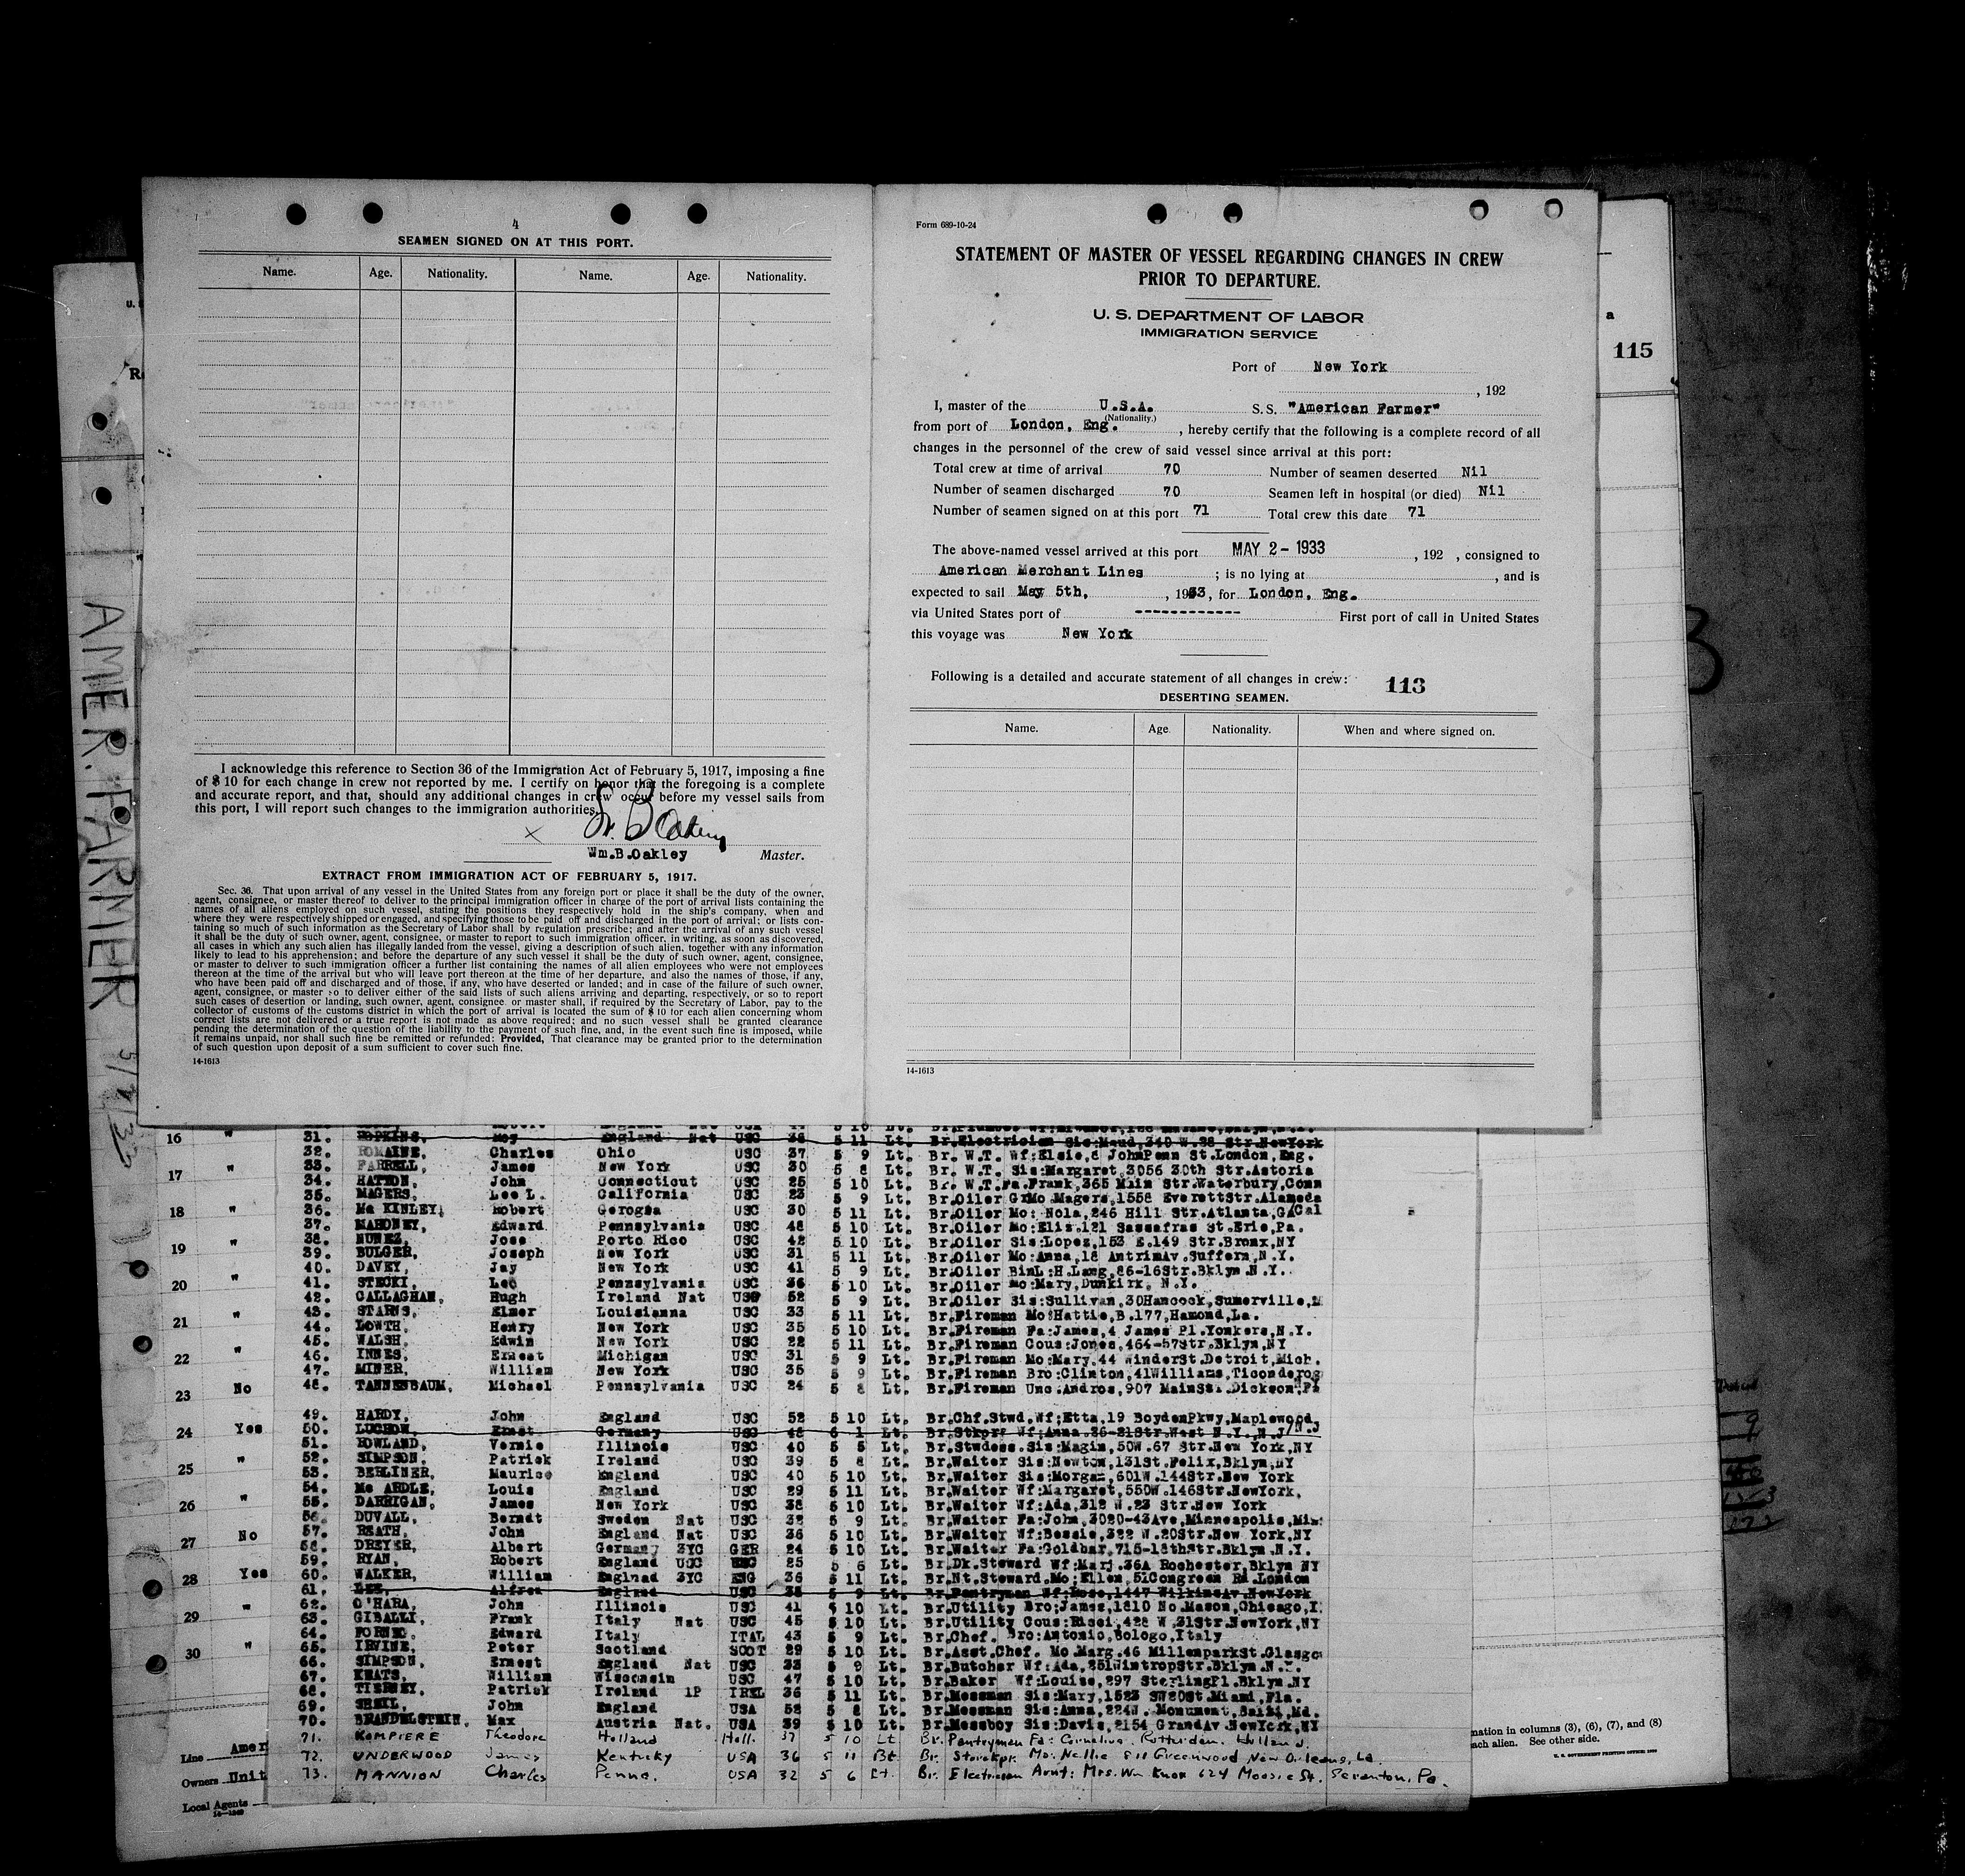 4
SEAMEN SIGNED ON AT THIS PORT.
Name. Age. Nationality. Name. Age. Nationality.
I acknowledge this reference to Section 36 of the Immigration Act of February 5, 1917, imposing a fine
of $ 10 for each change in crew not reported by me. I certify on honor that the foregoing is a complete
and accurate report, and that, should any additional changes in crew occur before my vessel sails from
this port, I will report such changes to the immigration authorities.
x
Wm.B.Oakley Master.
EXTRACT FROM IMMIGRATION ACT OF FEBRUARY 5, 1917.
Sec. 36. That upon arrival of any vessel in the United States from any foreign port or place it shall be the duty of the owner,
agent, consignee, or master thereof to deliver to the principal immigration officer in charge of the port of arrival lists containing the
names of all aliens employed on such vessel, stating the positions they respectively hold in the ship's company, when and
where they were respectively shipped or engaged, and specifying those to be paid off and discharged in the port of arrival; or lists con-
taining so much of such information as the Secretary of Labor shall by regulation prescribe; and after the arrival of any such vessel
it shall be the duty of such owner, agent, consignee, or master to report to such immigration officer, in writing, as soon as discovered,
all cases in which any such alien has illegally landed from the vessel, giving a description of such alien, together with any information
likely to lead to his apprehension; and before the departure of any such vessel it shall be the duty of such owner, agent, consignee,
or master to deliver to such immigration officer a further list containing the names of all alien employees who were not employees
thereon at the time of the arrival but who will leave port thereon at the time of her departure, and also the names of those, if any,
who have been paid off and discharged and of those, if any, who have deserted or landed; and in case of the failure of such owner,
agent, consignee, or master so to deliver either of the said lists of such aliens arriving and departing, respectively, or so to report
such cases of desertion or landing, such owner, agent, consignee or master shall, if required by the Secretary of Labor, pay to the
collector of customs of the customs district in which the port of arrival is located the sum of $ 10 for each alien concerning whom
correct lists are not delivered or a true report is not made as above required; and no such vessel shall be granted clearance
pending the determination of the question of the liability to the payment of such fine, and, in the event such fine is imposed, while
it remains unpaid, nor shall such fine be remitted or refunded: Provided, That clearance may be granted prior to the determination
of such question upon deposit of a sum sufficient to cover such fine.
14-1613
Form 689-10-24
STATEMENT OF MASTER OF VESSEL REGARDING CHANGES IN CREW
PRIOR TO DEPARTURE.
U. S. DEPARTMENT OF LABOR
IMMIGRATION SERVICE
Port of New York
, 192
I, master of the U.S.A. S.S. "American Farmer"
(Nationality.)
from port of London, Eng. , hereby certify that the following is a complete record of all
changes in the personnel of the crew of said vessel since arrival at this port:
Total crew at time of arrival 70 Number of seamen deserted Nil
Number of seamen discharged 70 Seamen left in hospital (or died) Nil
Number of seamen signed on at this port 71 Total crew this date 71
The above-named vessel arrived at this port MAY 2 - 1933 , 192 , consigned to
American Merchant Lines ; is no lying at , and is
expected to sail May 5th, , 1933, for London, Eng.
via United States port of ------------ First port of call in United States
this voyage was New York
Following is a detailed and accurate statement of all changes in crew: 113
DESERTING SEAMEN.
Name. Age Nationality. When and where signed on.
14-1613
a
115
AMER. FARMER 5/2/33
16 " 31. HOPKINS, Roy England Nat USC 38 5 11 Lt. Br.Electrician Sis:Maud,340 W.88 Str.NewYork
32. ROMAINE, Charles Ohio USC 37 5 9 Lt. Br. W.T. Wf:Elsie,8 JohnPenn St.London, Eng.
17 " 33. FARRELL, James New York USC 30 5 8 Lt. Br. W.T. Sis:Margaret,3056 30th Str.Astoria
34. HATTON, John Connecticut USC 25 5 10 Lt. Br. W.T.Fa.Frank,365 Main Str.Waterbury,Conn
35. MAGERS, Lee L. California USC 23 5 9 Lt. Br.Oiler GrMo Magers,1558 EverettStr.Alameda
18 " 36. Mc KINLEY, Robert Gerogea USC 30 5 11 Lt. Br.Oiler Mo: Nola,246 Hill Str.Atlanta,GACal
37. MAHONEY, Edward Pennsylvania USC 48 5 10 Lt. Br.Oiler Mo:Eliz.121 Sassafras St.Erie,Pa.
38. NUNEZ, Jose Porto Rico USC 42 5 10 Lt. Br.Oiler Sis:Lopez,153 E.149 Str.Bronx,NY
19 " 39. BULGER, Joseph New York USC 31 5 11 Lt. Br.Oiler Mo:Anna,18 AntrimAv.Suffern,N.Y.
40. DAVEY, Jay New York USC 41 5 9 Lt. Br.Oiler BinL:H.Lang,86-16Str.Bklyn.N.Y.
20 " 41. STECKI, Leo Pennsylvania USC 36 5 10 Lt. Br.Oiler Mo:Mary,Dunkirk, N.Y.
42. CALLAGHAN, Hugh Ireland Nat USC 52 5 9 Lt. Br.Oiler Sis:Sullivan,30Hancock,Sumerville,M
21 " 43. STARNS, Elmer Louisianna USC 33 5 11 Lt. Br.Fireman Mo:Hattie,B.177,Hamond,La.
44. LOWTH, Henry New York USC 35 5 10 Lt. Br.Fireman Fa:James,4 James Pl.Yonkers,N.Y.
45. WALSH, Edwin New York USC 22 5 11 Lt. Br.Fireman Cous:Jones,464-57Str.Bklyn,NY
22 " 46. INNES, Ernest Michigan USC 31 5 9 Lt. Br.Fireman Mo:Mary,44 WinderSt.Detroit,Mich.
47. MINER, William New York USC 35 5 9 Lt. Br.Fireman Bro:Clinton,41Williams,Ticonderog
23 No 48. TANNENBAUM, Michael Pennsylvania USC 24 5 8 Lt. Br.Fireman Unc:Andros,907 MainSt. Dickson,Pa
49. HARDY, John England USC 52 5 10 Lt. Br.Chf.Stwd.Wf:Etta,19 BoydenPkwy,Maplewood,
24 Yes 50. LUCHOW, Ernst Germany USC 48 6 1 Lt. Br.Stkpr. Wf:Anna.26-21Str.West N.Y.,N.J/N.J
51. ROWLAND, Vernie Illinois USC 40 5 5 Lt. Br.Stwdess.Sis:Magin,50W.67 Str.New York,NY
52. SIMPSON, Patrick Ireland USC 39 5 8 Lt. Br.Waiter Sis:Newton,131St.Felix,Bklyn,NY
25 " 53. BERLINER, Maurice England USC 40 5 10 Lt. Br.Waiter Sis:Morgan,601W.144Str.New York
54. Mc ARDLE, Louis England USC 29 5 11 Lt. Br.Waiter Wf:Margaret,550W.146Str.NewYork,
26 " 55. DARRIGAN, James New York USC 38 5 10 Lt. Br.Waiter Wf:Ada,312 W.23 Str.New York
56. DUVALL, Berndt Sweden Nat USC 32 5 9 Lt. Br.Waiter Fa:John,3020-43Ave,Minneapolis,Min
27 No 57. HEATH, John England Nat USC 36 5 10 Lt. Br.Waiter Wf:Bessie,322 W.20Str.New York,NY
58. DREYER, Albert Germany 3YC GER 24 5 10 Lt. Br.Waiter Fa:Goldbar,715-18thStr.Bklyn.N.Y.
59. RYAN, Robert England USC 25 5 6 Lt. Br.Dk.Steward Wf:Marj.36A Rochester,Bklyn NY
28 Yes 60. WALKER, William Englnad 3YC ENG 36 5 11 Lt. Br.Nt.Steward.Mo:Ellen,52Congreen Rd.London
61. LEE, Alfred England USC 38 5 9 Lt. Br.Pantryman Wf:Rose,1447 WilkinsAv.NewYork
62. O'HARA, John Illinois USC 41 5 10 Lt. Br.Utility Bro:James,1810 No.Mason,Chicago,I
29 " 63. GIBALLI, Frank Italy Nat USC 45 5 10 Lt. Br.Utility Cous:Ricci,428 W.31Str.NewYork,NY
64. FORNEC, Edward Italy ITAL 43 5 9 Lt. Br.Chef. Bro:Antonio,Bologo,Italy
30 " 65. IRVINE, Peter Scotland SCOT 29 5 10 Lt. Br.Asst.Chef. Mo.Marg.46 MillenparkSt.Glasgo
66. SIMPSON, Ernest England Nat USC 33 5 9 Lt. Br.Butcher Wf:Ada,251WintropStr.Bklyn.N.Y.
67. KEATS, William Wisconsin USC 47 5 10 Lt. Br.Baker Wf:Louise,297 SterlingPl.Bklyn.NY
68. TIERNEY, Patrick Ireland 1P IREL 36 5 11 Lt. Br.Messman Sis:Mary,1523 SW20St.Miami,Fla.
69. SHEIL, John England USA 52 5 8 Lt. Br.Messman Sis:Anna,224N. Monument,Balti,Md.
70. BRANDELSTEIN, Max Austria Nat. USA 39 5 10 Lt. Br.Messboy Sis:Davis,2154 GrandAv.NewYork,NY
71. KOMPIERE Theodore Holland Holl. 37 5 10 Lt Br. Pantryman Fa: Cornelius, Rotterdam, Holland.
72. UNDERWOOD James Kentucky USA 36 5 11 Bt. Br. Storekpr. Mo: Nellie 811 Greenwood New Orleans, La.
73. MANNION Charles Penna. USA 32 5 6 Lt. Br. Electrician Aunt: Mrs. Wm Knox 624 Moosic St. Scranton, Pa.
Line Amer
Owners Unit
Local Agents
mation in columns (3), (6), (7), and (8)
ach alien. See other side.
U. S. GOVERNMENT PRINTING OFFICE